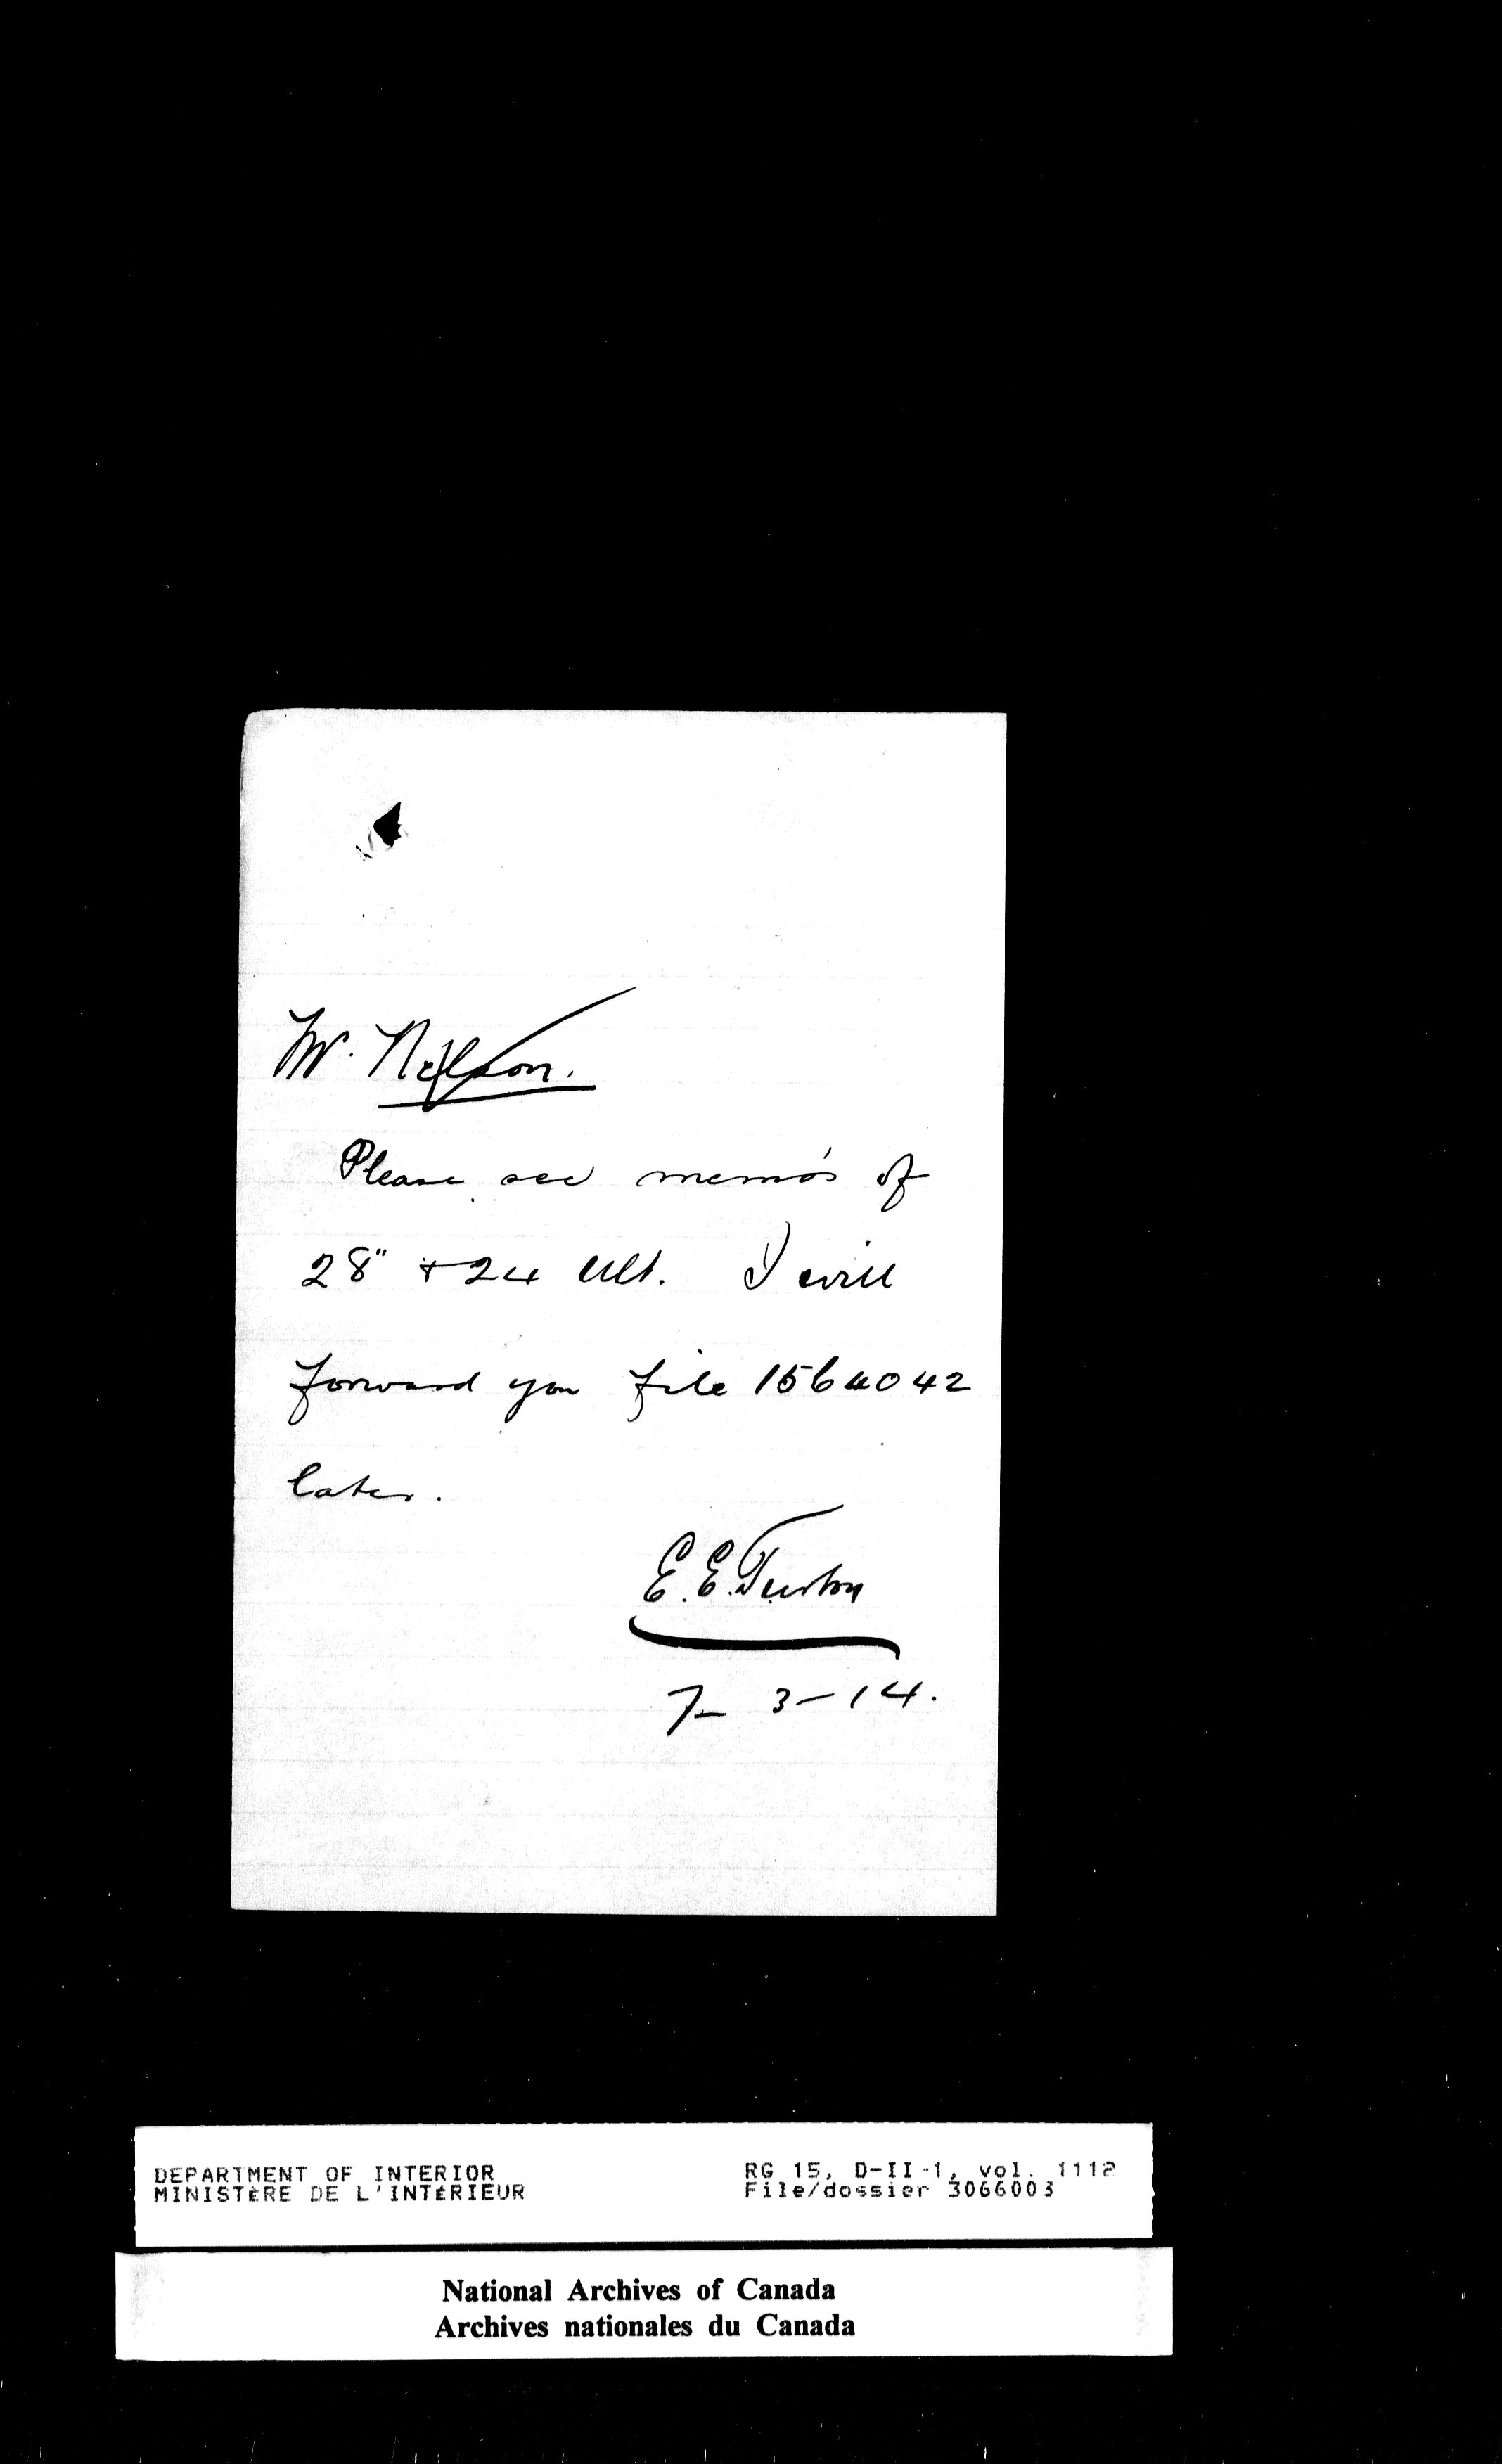 Mr. Nelson.
Please see memo's of
28" + 24 Ult. I will
forward you file 1564042
later.
E. E. Turton
7-3-14.
DEPARTMENT OF INTERIOR
MINISTÈRE DE L'INTÉRIEUR
RG 15, D-II-1, vol. 1112
File/dossier 3066003
National Archives of Canada
Archives nationales du Canada